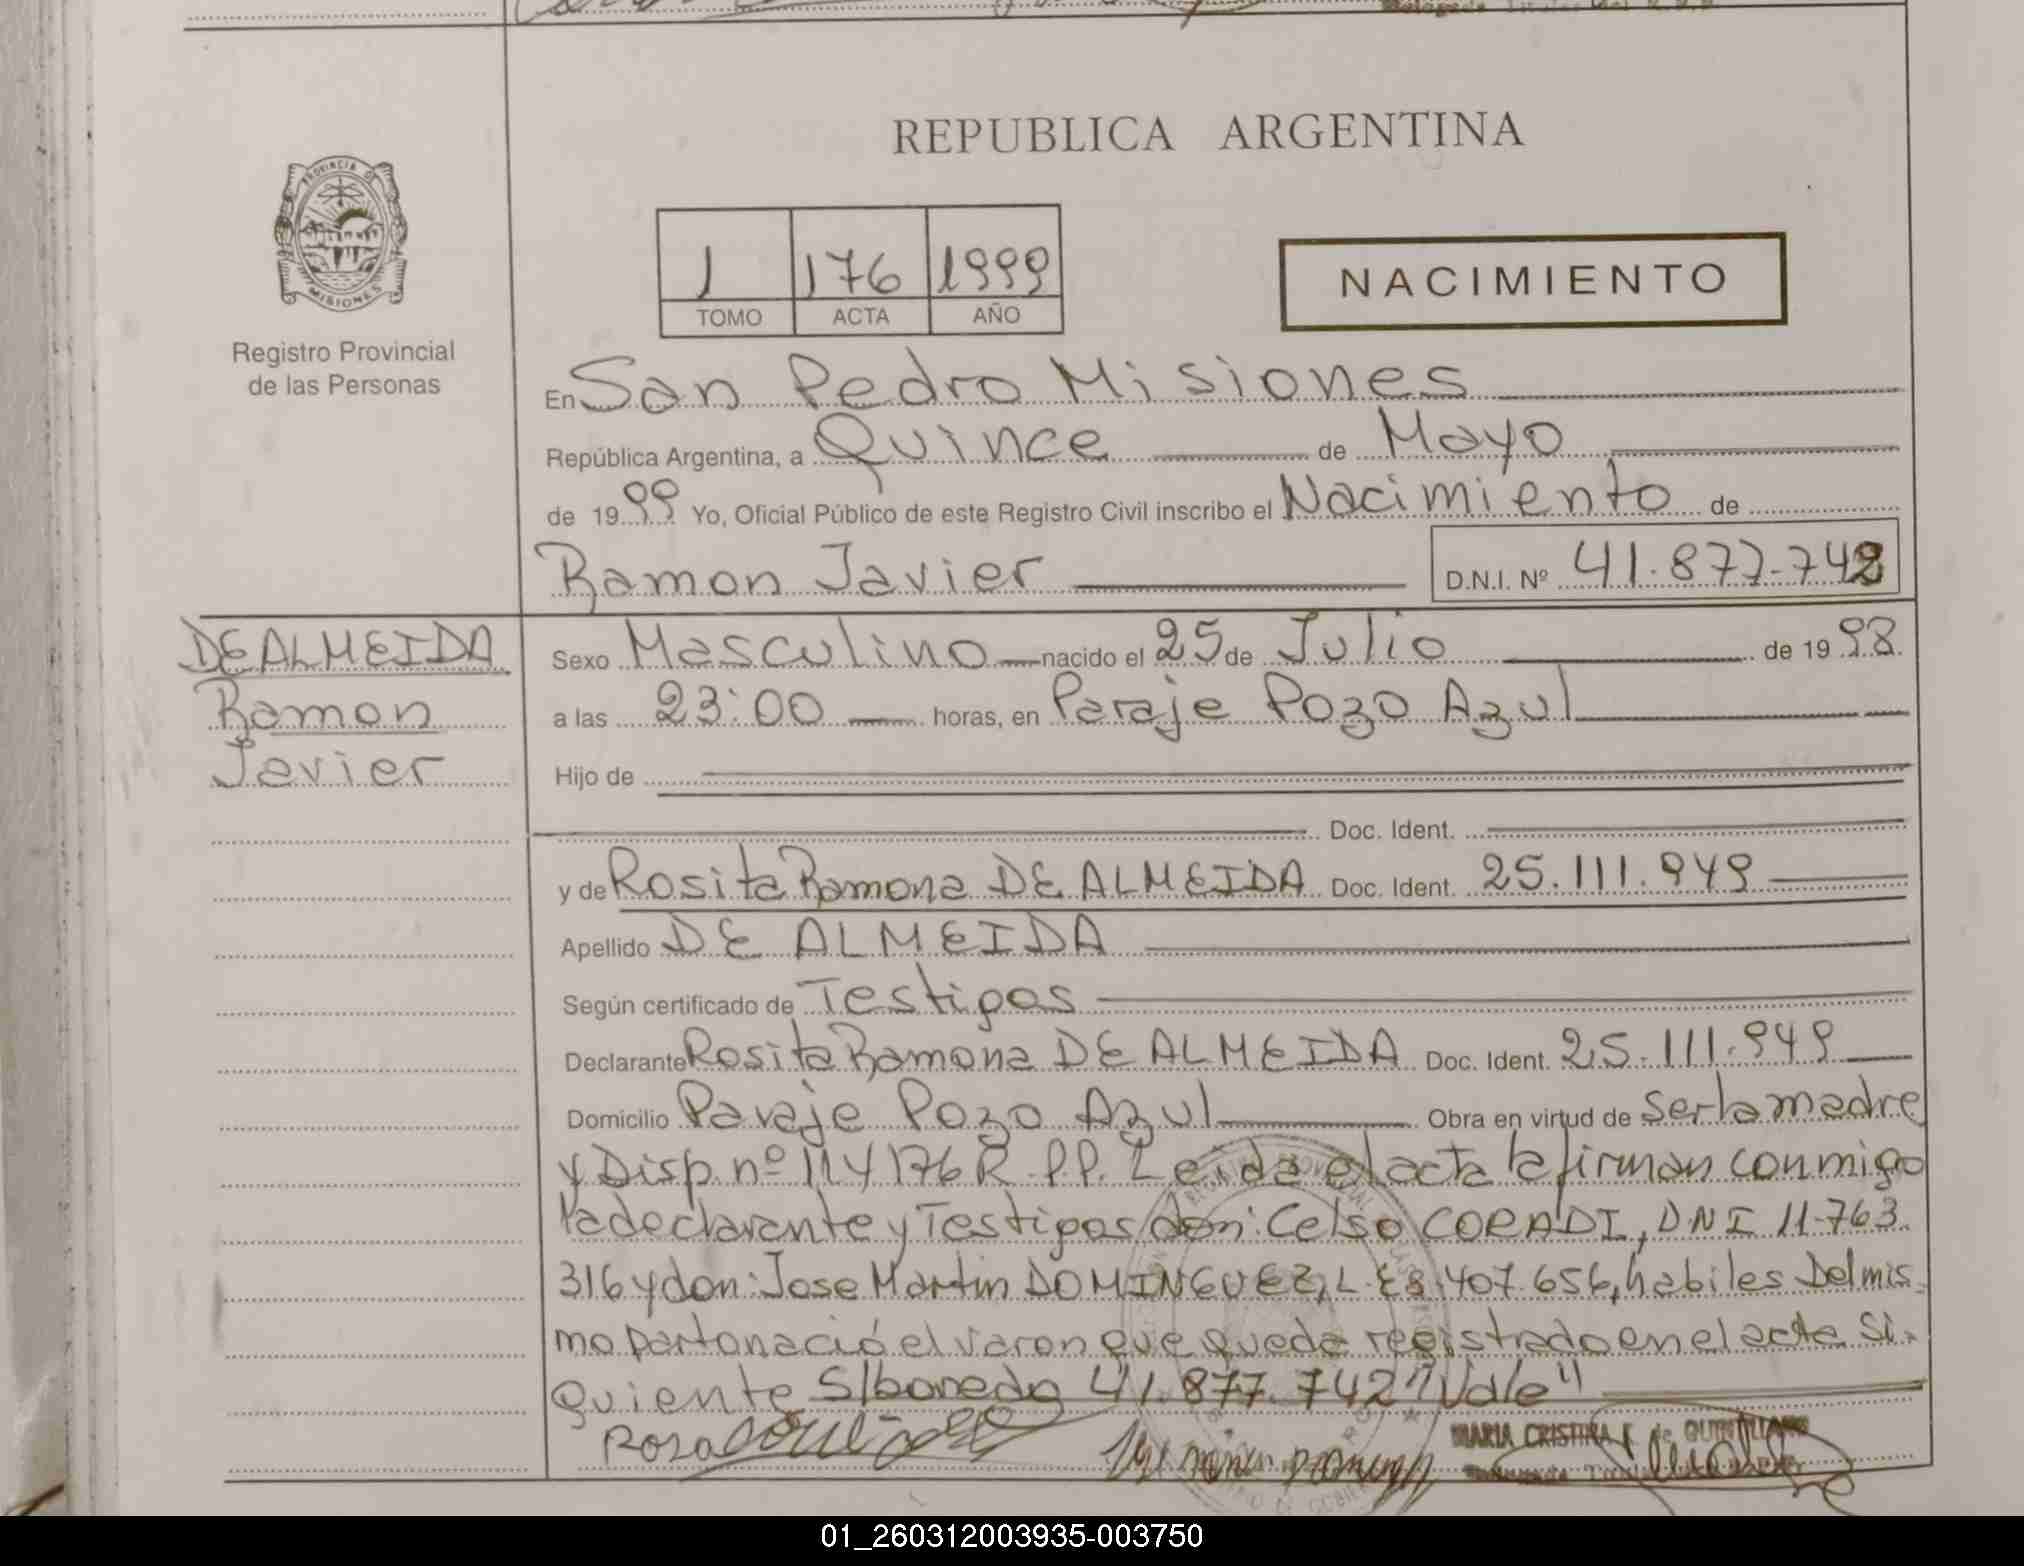 REPUBLICA ARGENTINA
PROVINCIA D
MISIONES
Registro Provincial
de las Personas
1 176 1999
TOMO ACTA AÑO
NACIMIENTO
En San Pedro Misiones
República Argentina, a Quince de Mayo
de 1999 Yo, Oficial Público de este Registro Civil inscribo el Nacimiento de
Ramon Javier D.N.I. Nº 41.877.742
DE ALMEIDA
Ramon
Javier
Sexo Masculino nacido el 25 de Julio de 1998
a las 23:00 horas, en Paraje Pozo Azul
Hijo de
Doc. Ident.
y de Rosita Ramona DE ALMEIDA Doc. Ident. 25.111.949
Apellido DE ALMEIDA
Según certificado de Testigos
Declarante Rosita Ramona DE ALMEIDA Doc. Ident. 25.111.949
Domicilio Paraje Pozo Azul Obra en virtud de ser la madre
y Disp. nº 114/176 R.P.P. Leida el acta la firman conmigo
la declarante y Testigos don: Celso CORADI, DNI 11.763.
316 y don: Jose Martin DOMINGUEZ, L.E 8.407.656, habiles Del mis-
mo parto nació el varon que queda registrado en el acta Si-
guiente S/borrado 41.877.742 "Vale"
MARIA CRISTINA F. de QUINTILLANO
01_260312003935-003750